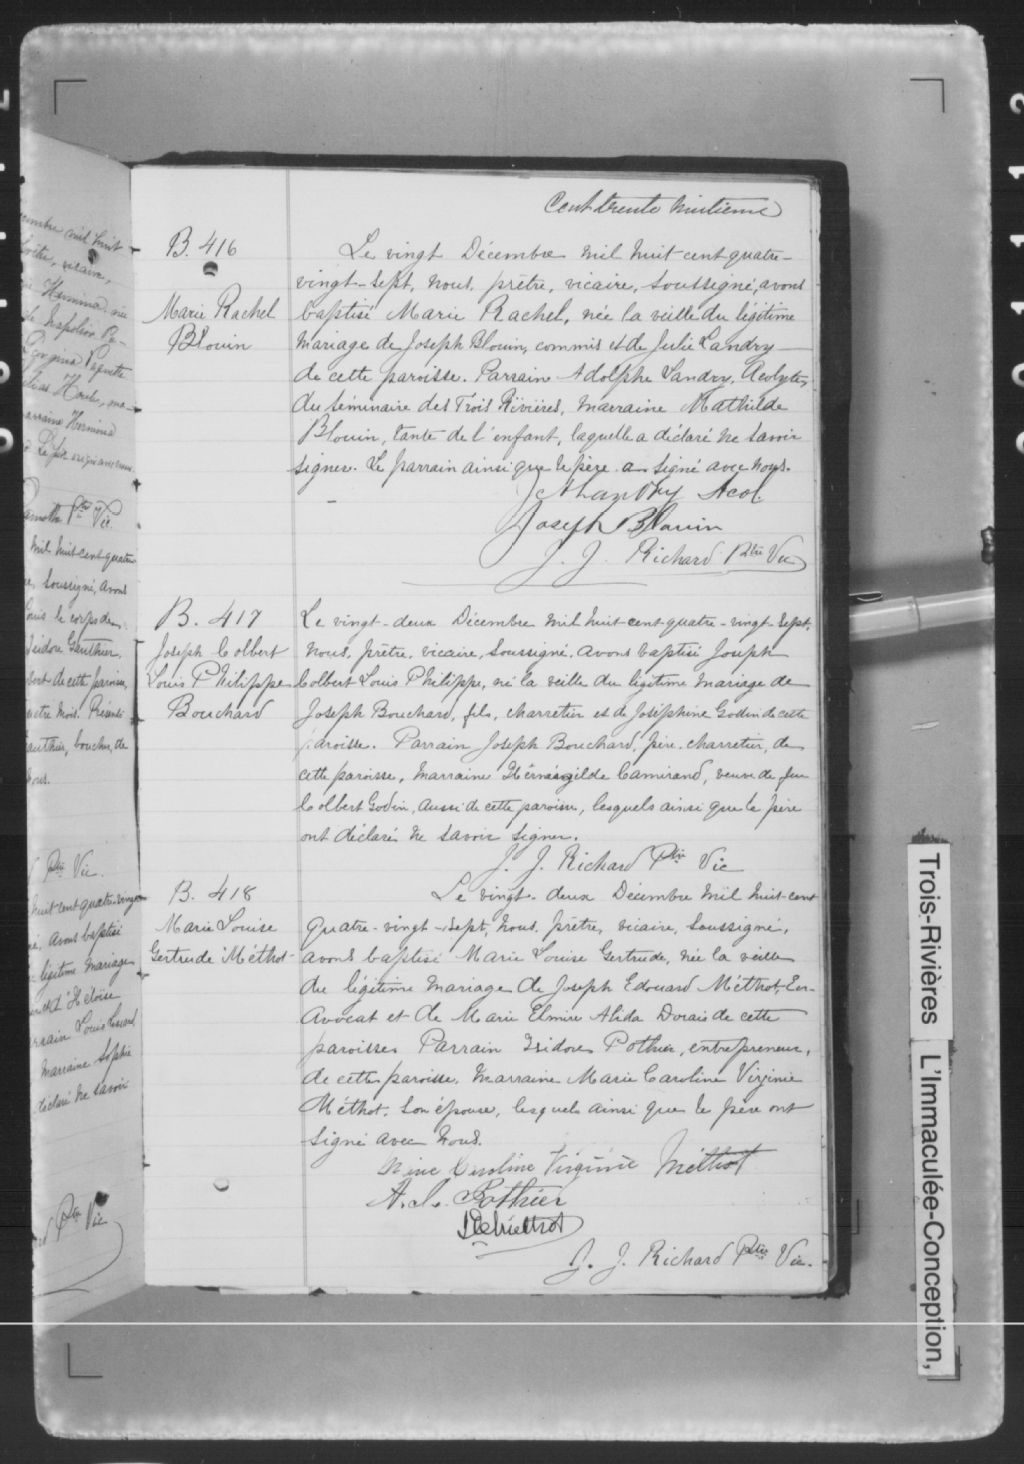 Cent trente huitième
B. 416
Marie Rachel
Blouin
Le vingt Décembre mil huit cent quatre-
vingt-sept, nous, prêtre, vicaire, soussigné, avons
baptisé Marie Rachel, née la veille du légitime
mariage de Joseph Blouin, commis et de Julie Landry
de cette paroisse. Parrain Adolphe Landry, Acolyte,
du séminaire des Trois Rivières, marraine Mathilde
Blouin, tante de l'enfant, laquelle a déclaré ne savoir
signer. Le parrain ainsi que le père a signé avec nous.
Landry Acol.
Joseph Blouin
J. J. Richard Ptre Vic
B. 417
Joseph Colbert
Louis Philippe
Bouchard
Le vingt-deux Décembre mil huit-cent-quatre-vingt-sept,
nous, prêtre, vicaire, soussigné, avons baptisé Joseph
Colbert Louis Philippe, né la veille du légitime mariage de
Joseph Bouchard, fils, charretier et de Joséphine Godin de cette
paroisse. Parrain Joseph Bouchard, père, charretier, de
cette paroisse, marraine Herménégilde Camirand, veuve de feu
Colbert Godin, aussi de cette paroisse, lesquels ainsi que le père
ont déclaré ne savoir signer.
J. J. Richard Ptre Vic
B. 418
Marie Louise
Gertrude Méthot
Le vingt-deux Décembre mil huit-cent
quatre-vingt-sept, nous, prêtre, vicaire, soussigné,
avons baptisé Marie Louise Gertrude, née la veille
du légitime mariage de Joseph Edouard Méthot, Ecr
Avocat et de Marie Elmire Alida Dorais de cette
paroisse. Parrain Isidore Pothier, entrepreneur,
de cette paroisse, marraine Marie Caroline Virginie
Méthot, son épouse, lesquels ainsi que le père ont
signé avec nous.
Marie Caroline Virginie Méthot
Pothier
Méthot
J. J. Richard Ptre Vic.
Trois-Rivières L'Immaculée-Conception,